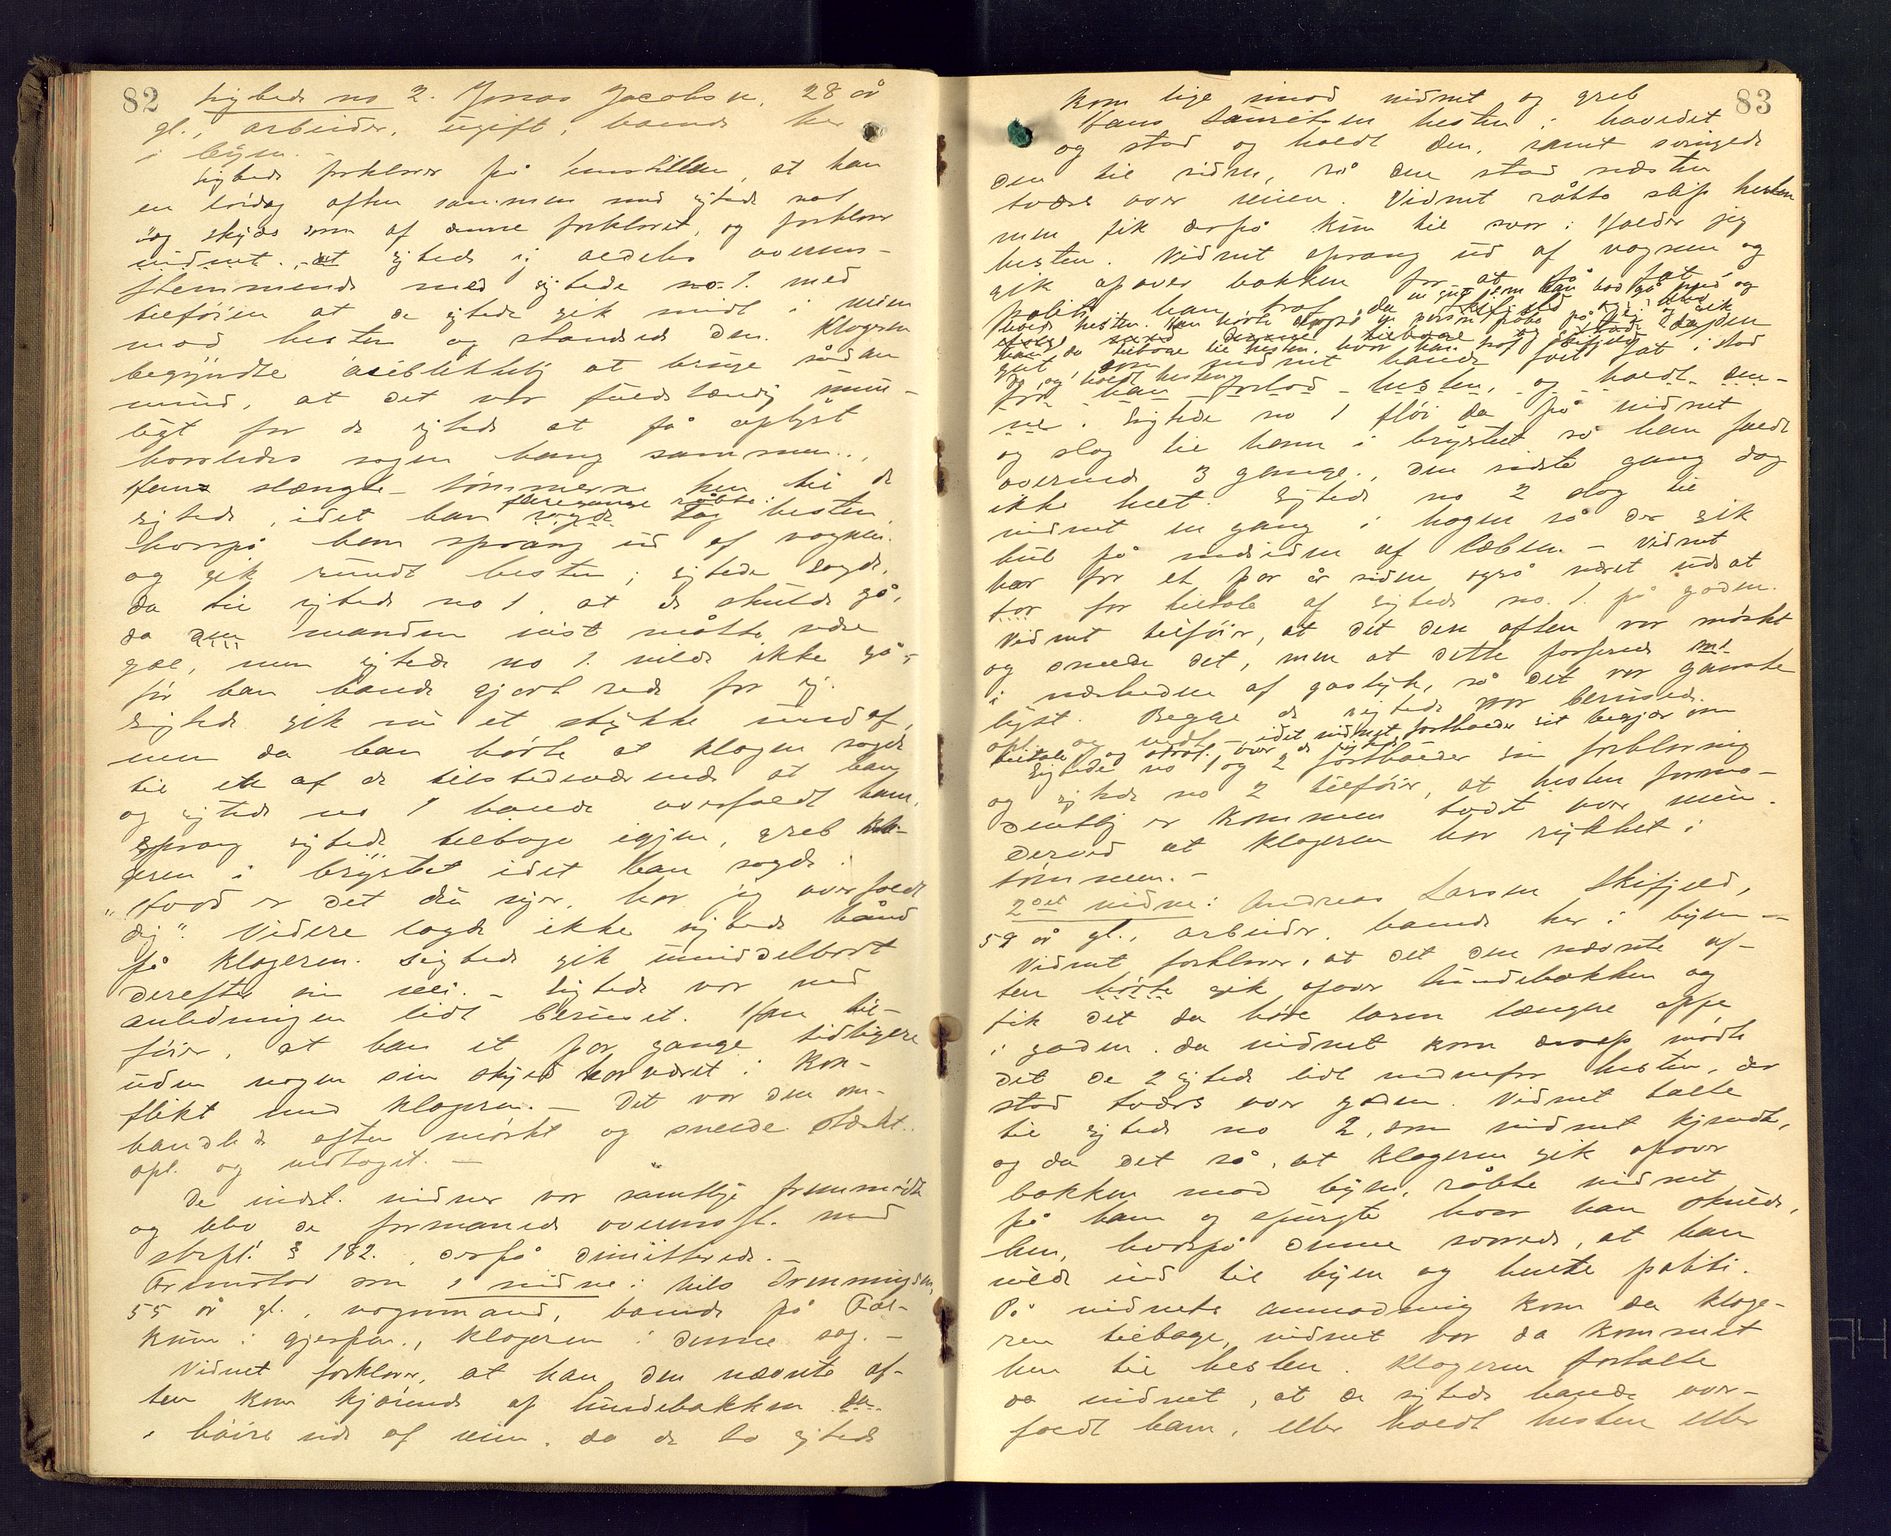 82
Sigtede no 2. Jonas Jacobsen, 28 år
gl., arbeider, ugift, boende her
i byen.
Sigtede forklarer på  at han
en lördag aften sammen med sigtede
 af denne forklaret, og forklarer
vidnet. at sigtede i  overens-
stemmende med sigtede no. 1. med
tilföien at de sigtede gik midt i veien
mod hesten og standsed den. Klageren
begyndte öieblikkelig at bruge sådan
mund, at det var fuldstændig umu-
ligt for de sigtede at få oplyst
hvorledes sagen hang sammen.
Han slængte tömmerne hen til de
flere gange råbte:
sigtede, idet han sagde tag hesten
hvorpå han sprang ud af vognen.
og gik rundt hesten; sigtede sagde
da til sigtede no 1, at de skulde gå,
da den manden vist måtte være
gal, men sigtede no 1. vilde ikke gå,
för han havde gjort rede for sig.
Sigtede gik nu et stykke
men da han hörte at klageren sagde
til en af de tilstedeværende at han
og sigtede no 1 havde overfaldt ham,
sprang sigtede tilbage igjen, greb kla-
geren i brystet idet han sagde:
"Hvad er det du siger, har jeg overfaldt
dig". Videre lagde ikke sigtede hånd
på klageren. Sigtede gik umiddelbart
derefter sin vei. – Sigtede var ved
anledningen lidt beruset. Han til-
föier, at han et par gange tidligere
uden nogen sin skyld har været i kon-
flikt med klageren. – Det var den om-
handlede aften mörkt og sneede stærkt.
opl. og vedtaget. –
De indst. vidner var samtlige fremmödte
og blev de formanede overensst. med
strfpl. § 182., derpå dimitterede. –
Fremstod som 1 vidne: Nils Svenningsen,
55 år gl., vognmand, boende på Fal-
kum i gjerpen., klageren i denne sag. –
Vidnet forklarer, at han den nævnte af-
ten kom kjörende af hundebakken da.
i höire side af veien, da de to sigtede
83
kom lige imod vidnet og greb
Hans Lauretsen hesten i hovedet
og stod og holdt den, samt svingede
den til siden, så den stod næsten
tværs over veien. Vidnet råbte slip hesten
men fik derpå kun til svar: Holder jeg
hesten. Vidnet sprang ud af vognen og
gik opover bakken for at få fat
politi, han traf da en gut som han bad gå ned og
holde hesten. Han hörte  en person råbe på sig, og gik
 tilbage
han da tilbage til hesten, hvor han traf Skifjeld
gut som vidnet havde fået fat i stod
der og holdt hesten
för han forlod hesten, og holdt den-
ne. Sigtede no 1 flöi da på vidnet
og slog til ham i brystet så han faldt
overende 3 gange., den sidste gang dog
ikke helt. Sigtede no 2 slog til
vidnet en gang i hagen så der gik
hul på indsiden af læben – Vidnet
har for et par år siden også været udsat
for for tiltale af sigtede no. 1. på gaden.
Vidnet tilföier, at det den aften var mörkt
og sneede det, men at dette forseede
i nærheden af gaslygt, så det var ganske
lyst. Begge de sigtede var berusede.
opl. og vedt. – idet vidnet fortholder sit begjær om
tiltale og straf. over de sigtede
Sigtede no 1 og 2 fortholder sin forklaring
og sigtede no 2 tilföier, at hesten formo-
dentlig er kommen tvert over veien.
derved at klageren har rykket i
tömmen. –
2det vidne: Andreas Larsen Skifjeld,
59 år gl., arbeider, boende her i byen –
Vidnet forklarer, at det den nævnte af-
ten hörte gik opover hundebakken og
fik det da höre larm længere oppe
i gaden. Da vidnet kom derop mödte
det de 2 sigtede lidt nedenfor hesten, der
stod tværs over gaden. Vidnet talte
til sigtede no 2, som vidnet kjendte,
og da det så, at klageren gik opover
bakken mod byen, råbte vidnet
på ham og spurgte hvor han skulde
hen, hvorpå denne svarede, at han
vilde ind til byen og hente politi.
På vidnets anmodning kom da klage-
ren tilbage, vidnet var da kommet
hen til hesten. Klageren fortalte
da vidnet, at de sigtede havde over-
faldt ham, eller holdt hesten eller